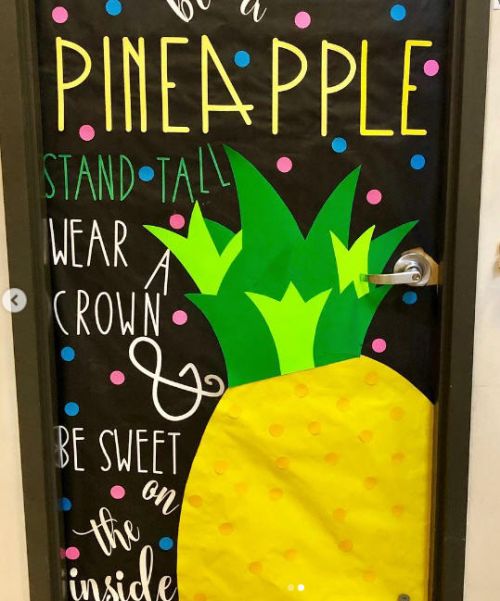 be a
PINEAPPLE
STAND TALL
WEAR A
CROWN
&
BE SWEET
on
the
inside